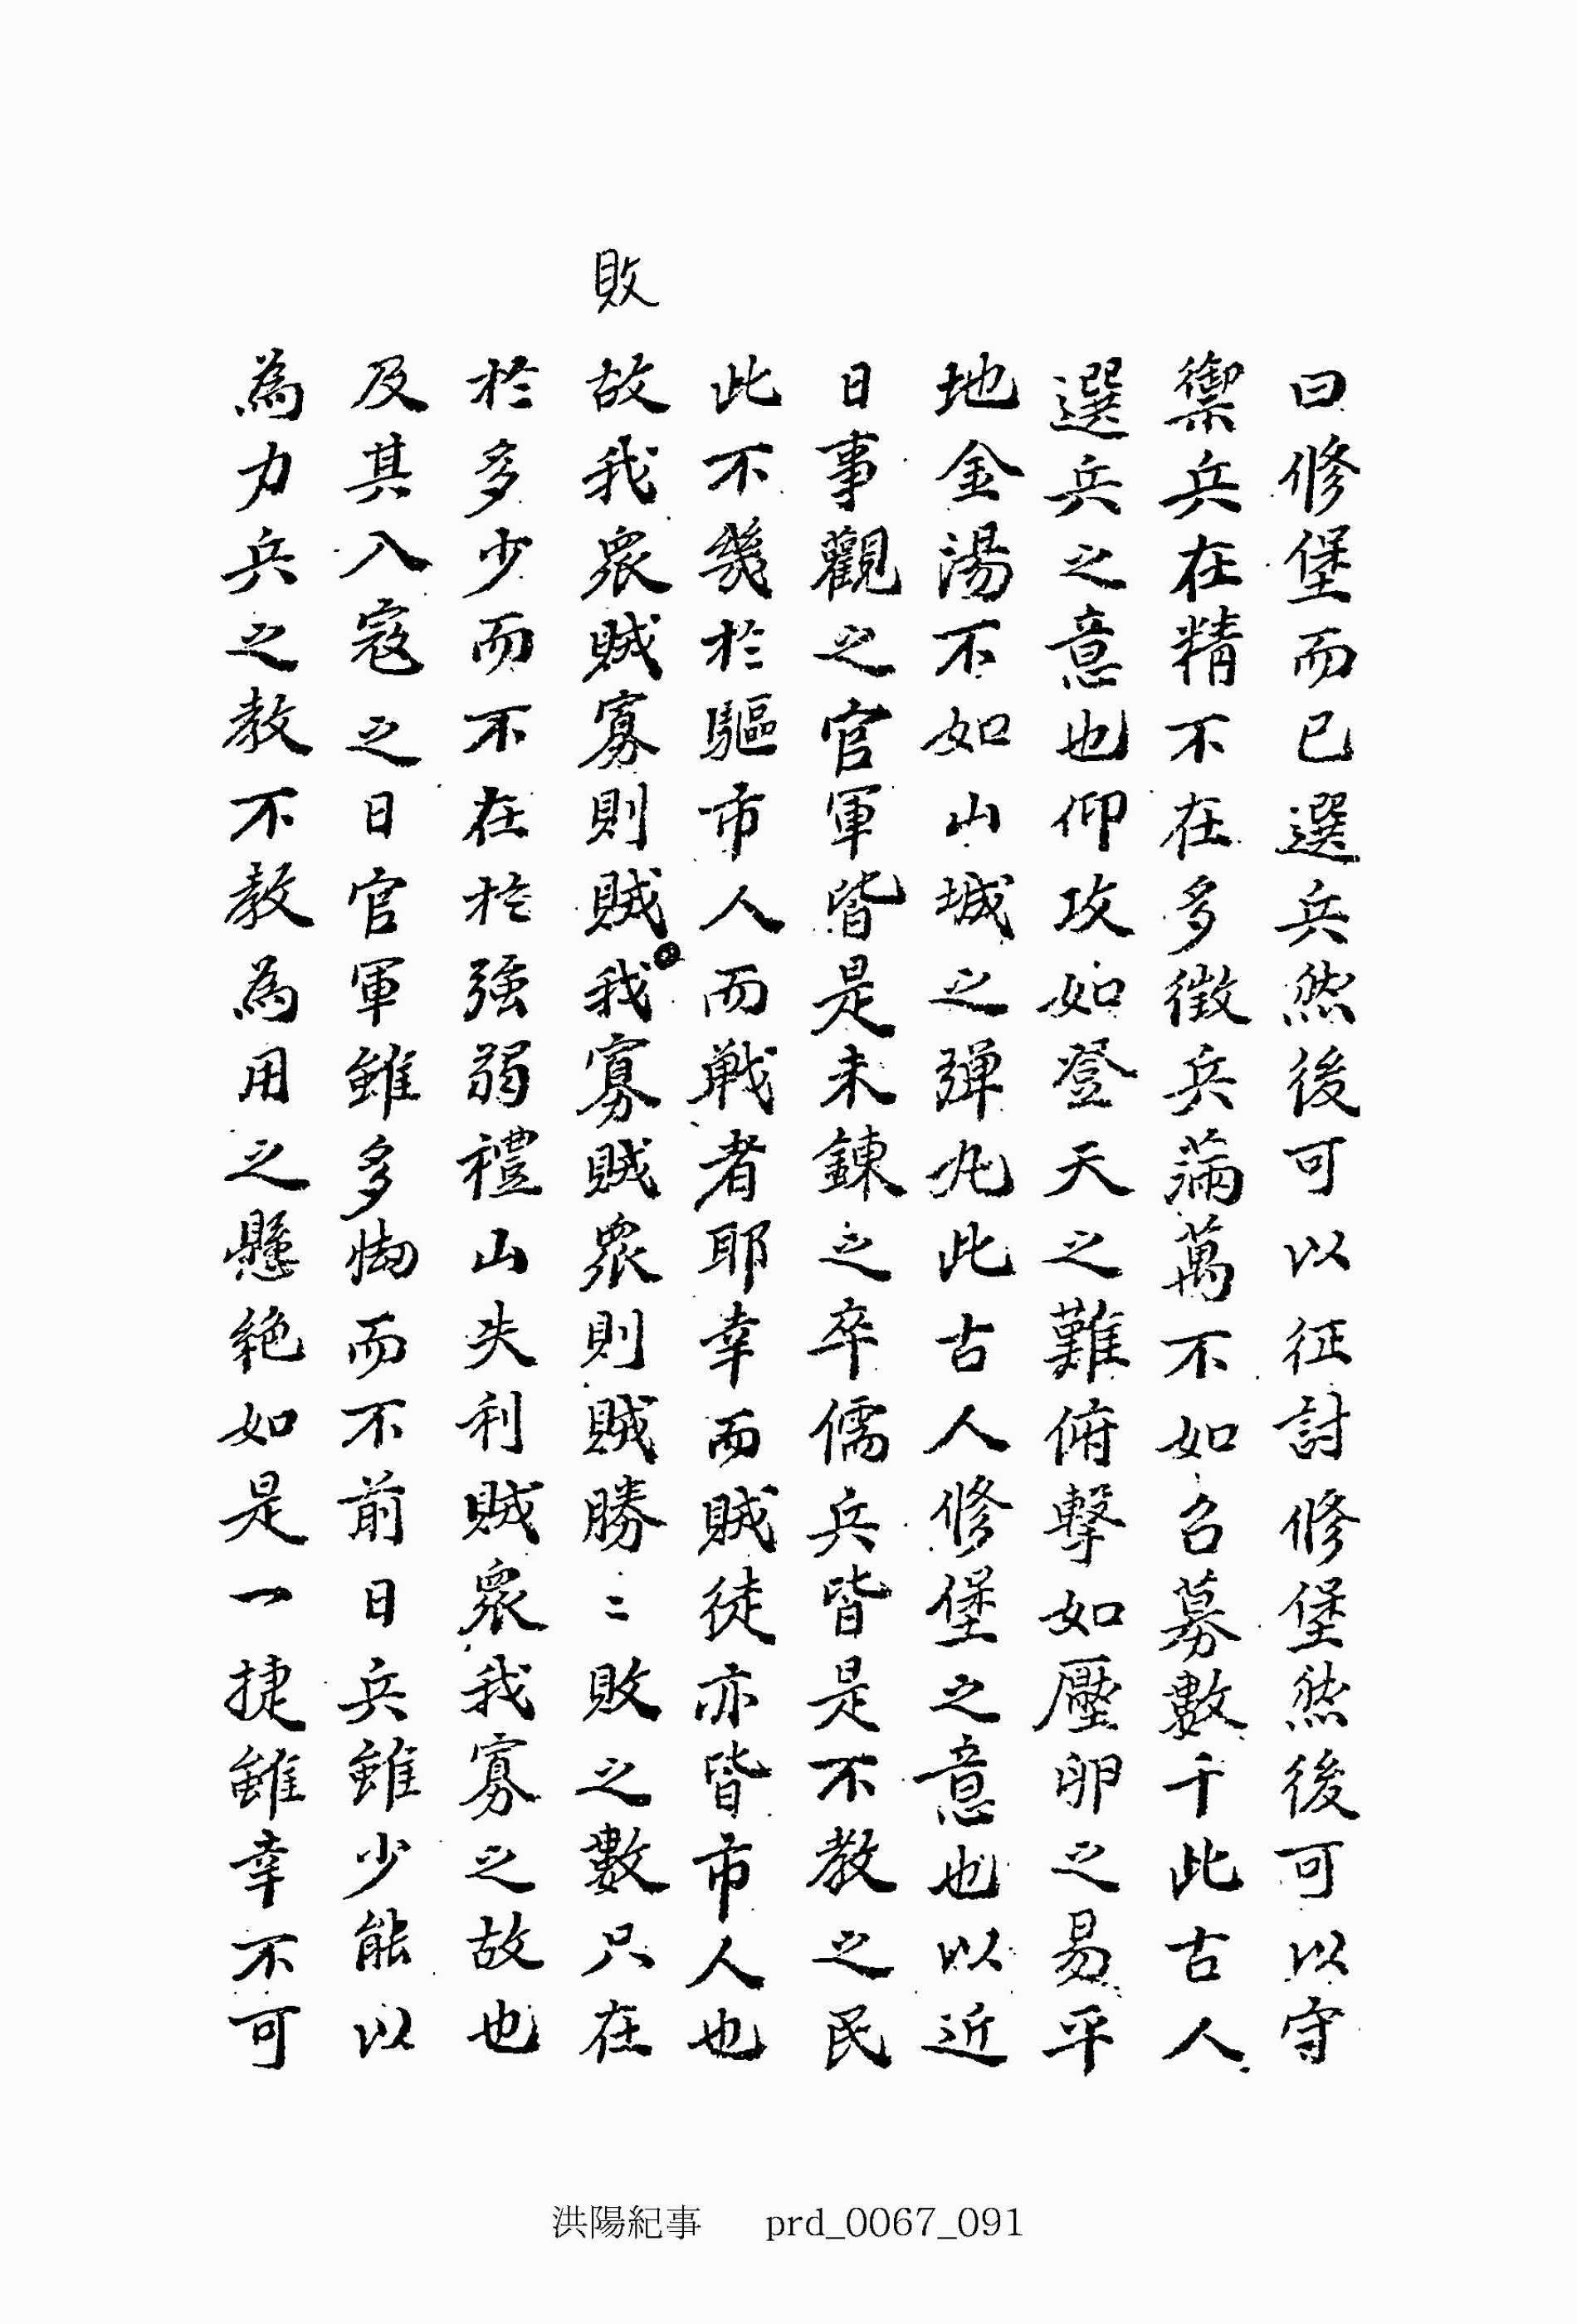 敗
曰修堡而已選兵然後可以征討修堡然後可以守
禦兵在精不在多徵兵滿萬不如召募數千此古人
選兵之意也仰攻如登天之難俯擊如壓卵之易平
地金湯不如山城之彈丸此古人修堡之意也以近
日事觀之官軍皆是未鍊之卒儒兵皆是不教之民
此不幾於驅市人而戰者耶幸而賊徒亦皆市人也
故我衆賊寡則賊我寡賊衆則賊勝〻敗之數只在
於多少而不在於強弱禮山失利賊衆我寡之故也
及其入寇之日官軍雖多㤼而不前日兵雖少能以
為力兵之教不教為用之懸絶如是一捷雖幸不可
洪陽紀事 prd_0067_091